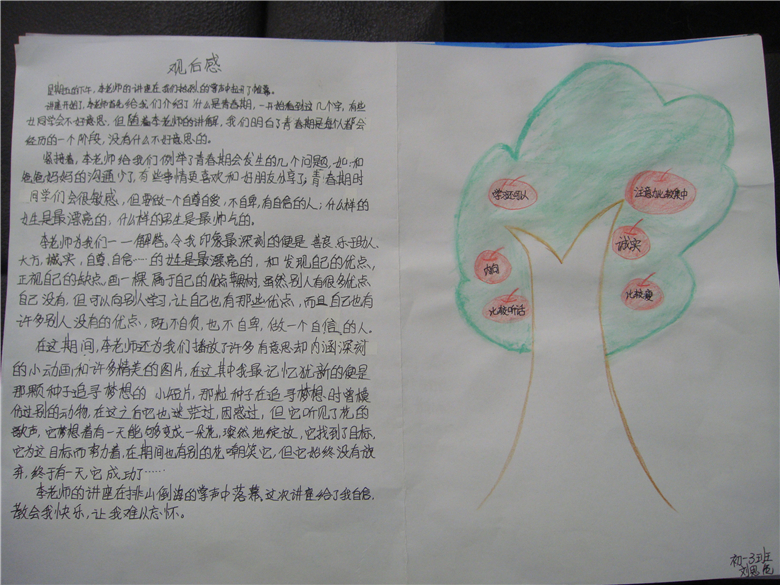 观后感
星期四的下午，李老师的讲座在我们热烈的掌声中拉开了帷幕。
讲座开始了，李老师首先给我们介绍了什么是青春期，一开始看到这几个字，有些
女同学会不好意思，但随着李老师的讲解，我们明白了青春期是每个人都会
经历的一个阶段，没有什么不好意思的。
紧接着，李老师给我们例举了青春期会发生的几个问题，如和
爸爸妈妈的沟通少了，有些事情更喜欢和好朋友分享了，青春期时
同学们会很敏感，但要做一个自尊自爱，不自卑，有自信的人；什么样的
女生是最漂亮的，什么样的男生是最帅气的。
李老师为我们一一解答。令我印象最深刻的便是善良，乐于助人，
大方，诚实，自尊，自信……的女生是最漂亮的，和发现自己的优点，
正视自己的缺点，画一棵属于自己的优点树，虽然别人有很多优点
自己没有，但可以向别人学习，让自己也有那些优点，而且自己也有
许多别人没有的优点，既不自负，也不自卑，做一个自信的人。
在这期间，李老师还为我们播放了许多有意思却内涵深刻
的小动画，和许多精美的图片，在这其中我最记忆犹新的便是
那颗种子追寻梦想的小短片，那粒种子在追寻梦想时曾模
仿过别的动物，在这之后它也迷茫过，困惑过，但它听见了花的
歌声，它梦想着有一天能够变成一朵花，璨然地绽放，它找到了目标，
它为这目标而努力着，在期间也有别的花嘲笑它，但它始终没有放
弃，终于有一天它成功了……
李老师的讲座在排山倒海的掌声中落幕，这次讲座给了我自信，
教会我快乐，让我难以忘怀。
学习用人
注意力比较集中
诚实
比较听话
比较瘦
初一3班
刘思